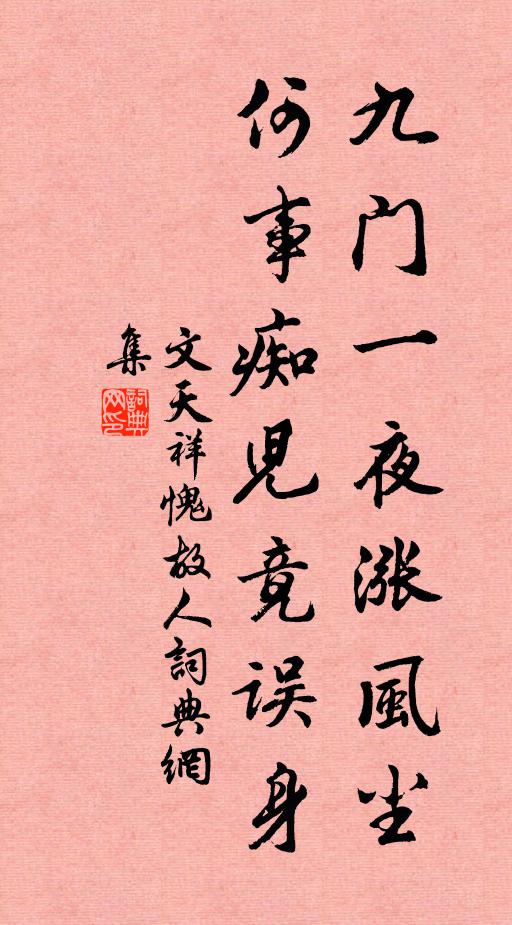 九门一夜涨風尘
何事痴児竟误身
文天祥愧故人詞典網
集
詞典
网印